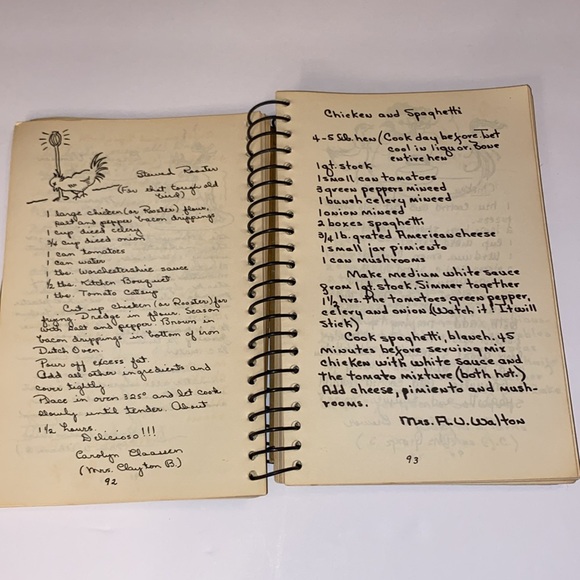 Stewed Rooster
(For that tough old
bird)
1 large chicken (or Rooster) flour,
salt and pepper bacon drippings
1 cup diced celery
3/4 cup diced onion
1 can tomatoes
1 can water
1 tbs. Worchestershire sauce
1/2 tbs. Kitchen Bouquet
1 tbs. Tomato Catsup
Cut up chicken (or Rooster) for
frying. Dredge in flour. Season
with salt and pepper. Brown in
bacon drippings in bottom of iron
Dutch Oven
Pour off excess fat.
Add all other ingredients and
cover tightly
Place in oven 325° and let cook
slowly until tender. About
1 1/2 hours.
Delicioso!!!
Carolyn Claassen
(Mrs. Clayton B.)
92
Chicken and Spaghetti
4-5 lb. hen (Cook day before. Let
cool in liquor. Bone
entire hen
1 qt. stock
1 small can tomatoes
3 green peppers minced
1 bunch celery minced
1 onion minced
2 boxes spaghetti
3/4 lb. grated American cheese
1 small jar pimiento
1 can mushrooms
Make medium white sauce
from 1 qt. stock. Simmer together
1 1/2 hrs. The tomatoes, green pepper,
celery and onion (Watch it! It will
stick)
Cook spaghetti, blanch. 45
minutes before serving mix
chicken with white sauce and
the tomato mixture (both hot.)
Add cheese, pimiento and mush-
rooms.
Mrs. A.W. Walton
93